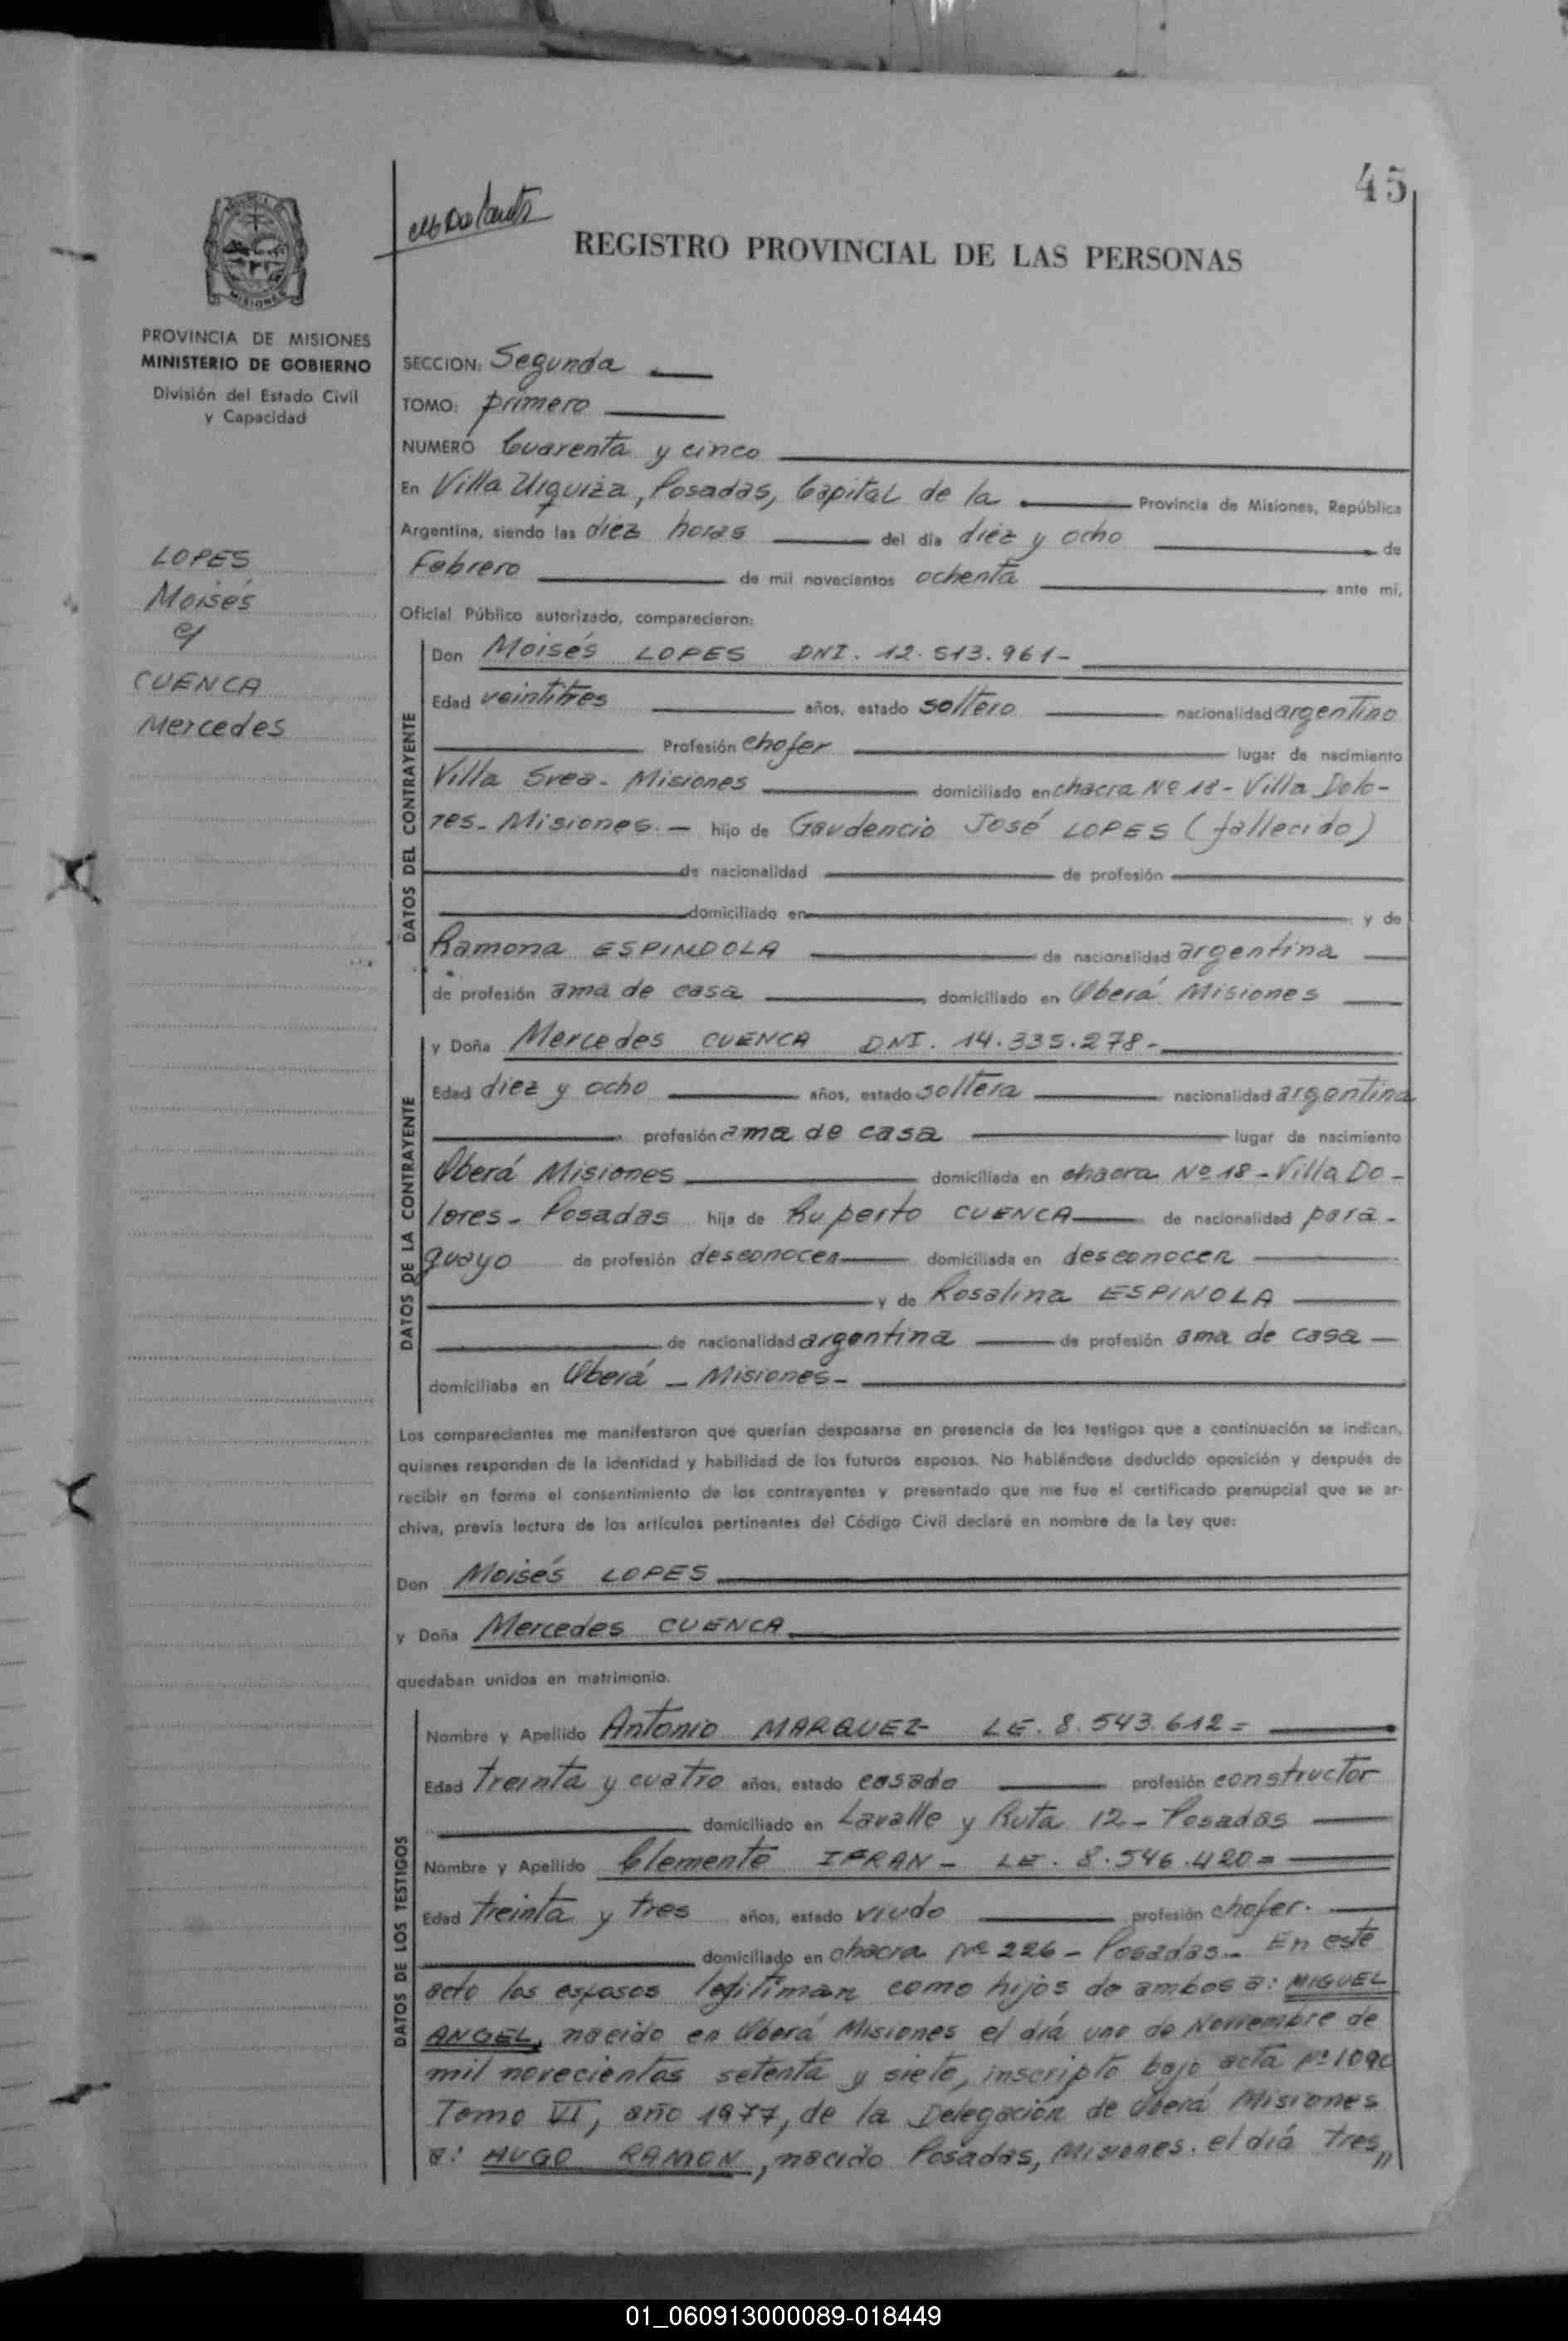 45
REGISTRO PROVINCIAL DE LAS PERSONAS
MISIONES
PROVINCIA DE MISIONES
MINISTERIO DE GOBIERNO
División del Estado Civil
y Capacidad
LOPES
Moisés
c/
CUENCA
Mercedes
SECCION: Segunda
TOMO: primero
NUMERO Cuarenta y cinco
En Villa Urquiza, Posadas, Capital de la Provincia de Misiones, República
Argentina, siendo las diez horas del día diez y ocho de
Febrero de mil novecientos ochenta ante mi,
Oficial Público autorizado, comparecieron:
DATOS DEL CONTRAYENTE
Don Moisés LOPES DNI. 12.513.961-
Edad veintitres años, estado soltero nacionalidad argentino
Profesión chofer lugar de nacimiento
Villa Svea - Misiones domiciliado en chacra Nº 18 - Villa Dolo-
res - Misiones. - hijo de Gaudencio José LOPES (fallecido)
de nacionalidad de profesión
domiciliado en y de
Ramona ESPINDOLA de nacionalidad argentina
de profesión ama de casa domiciliado en Oberá Misiones
DATOS DE LA CONTRAYENTE
y Doña Mercedes CUENCA DNI. 14.335.278-
Edad diez y ocho años, estado soltera nacionalidad argentina
profesión ama de casa lugar de nacimiento
Oberá Misiones domiciliada en chacra Nº 18 - Villa Do-
lores - Posadas hija de Ruperto CUENCA de nacionalidad para-
guayo de profesión desconocen domiciliada en desconocen
y de Rosalina ESPINOLA
de nacionalidad argentina de profesión ama de casa
domiciliaba en Oberá - Misiones-
Los comparecientes me manifestaron que querían desposarse en presencia de los testigos que a continuación se indican,
quienes responden de la identidad y habilidad de los futuros esposos. No habiéndose deducido oposición y después de
recibir en forma el consentimiento de los contrayentes y presentado que me fue el certificado prenupcial que se ar-
chiva, previa lectura de los artículos pertinentes del Código Civil declaré en nombre de la Ley que:
Don Moisés LOPES
y Doña Mercedes CUENCA
quedaban unidos en matrimonio.
DATOS DE LOS TESTIGOS
Nombre y Apellido Antonio MARQUEZ LE. 8.543.612=
Edad treinta y cuatro años, estado casado profesión constructor
domiciliado en Lavalle y Ruta 12 - Posadas
Nombre y Apellido Clemente IFRAN - LE. 8.546.420=
Edad treinta y tres años, estado viudo profesión chofer.
domiciliado en chacra Nº 226 - Posadas - En este
acto los esposos legitiman como hijos de ambos a: MIGUEL
ANGEL, nacido en Oberá Misiones el día uno de Noviembre de
mil novecientos setenta y siete, inscripto bajo acta Nº 1090
Tomo VI, año 1977, de la Delegación de Oberá Misiones
a: HUGO RAMON, nacido Posadas, Misiones. el día tres,,
01_060913000089-018449